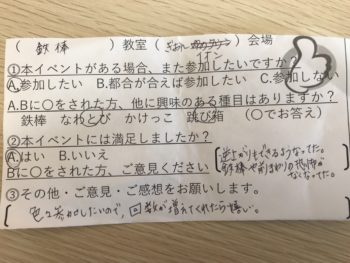 ( 鉄棒 ) 教室 ( ) 会場
①本イベントがある場合、また参加したいですか?
A.参加したい B.都合が合えば参加したい C.参加しない
A.Bに○をされた方、他に興味のある種目はありますか?
鉄棒 なわとび かけっこ 跳び箱 (○でお答え)
②本イベントには満足しましたか?
A.はい B.いいえ
Bに○をされた方、ご意見ください
逆上がりもできるようなってた。
鉄棒や前まわりの恐怖が
なくなってた。
③その他・ご意見・ご感想をお願いします。
色々参加したいので、回数が増えてくれたら嬉しい。